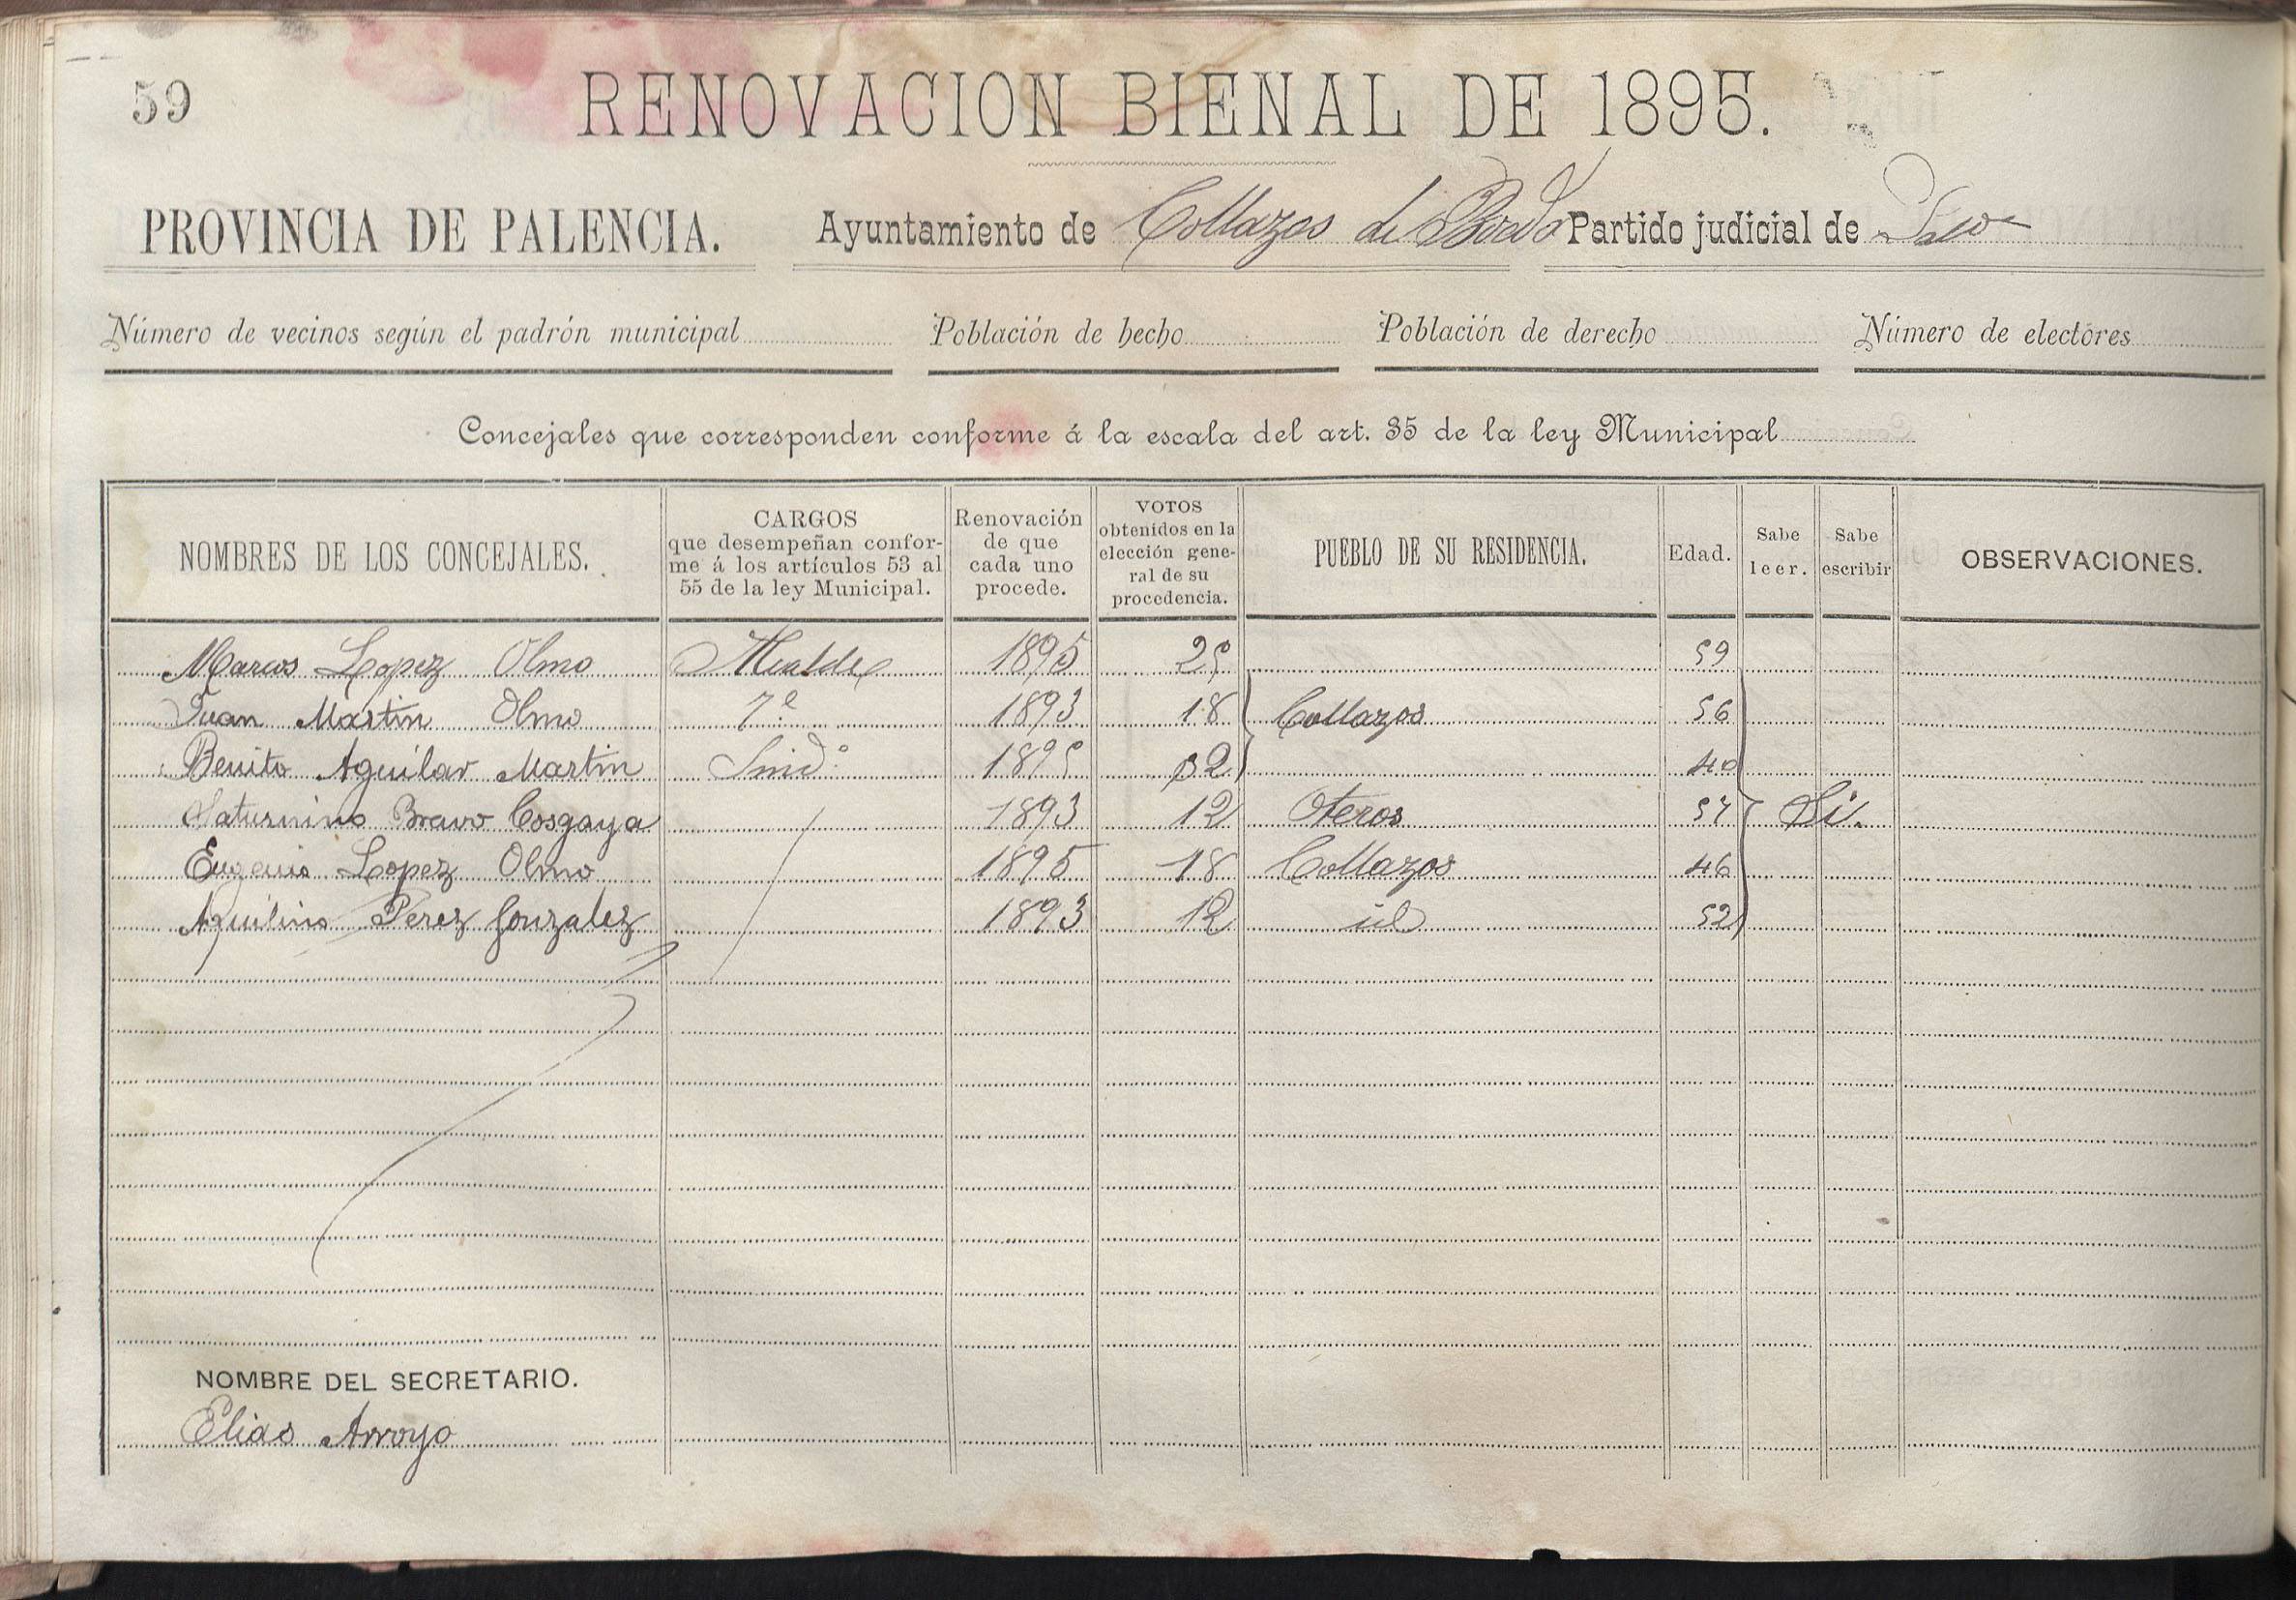 59
RENOVACION BIENAL DE 1895.
PROVINCIA DE PALENCIA. Ayuntamiento de Collazos de Boedo Partido judicial de
Número de vecinos según el padrón municipal Población de hecho Población de derecho Número de electores
Concejales que corresponden conforme á la escala del art. 35 de la ley Municipal
NOMBRES DE LOS CONCEJALES.
CARGOS
que desempeñan confor-
me á los artículos 53 al
55 de la ley Municipal.
Renovación
de que
cada uno
procede.
VOTOS
obtenidos en la
elección gene-
ral de su
procedencia.
PUEBLO DE SU RESIDENCIA.
Edad.
Sabe
leer.
Sabe
escribir
OBSERVACIONES.
Marcos Lopez Olmo Alcalde 1895 25 59
Juan Martin Olmo 1893 18 Collazos 56
Benito Aguilar Martin Sind.º 1895 40
Saturnino Bravo Cosgaya 1893 12 Oteros 57 Si.
Eugenio Lopez Olmo 1895 18 Collazos 46
Aquilino Perez Gonzalez 1893 12 id 52
NOMBRE DEL SECRETARIO.
Elias Arroyo